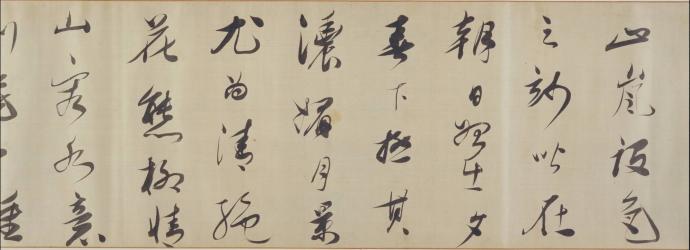 山嵐設色
之妙皆在
朝日始出夕
舂下極其
濃媚月景
尤為清絕
花態柳情
山容水意